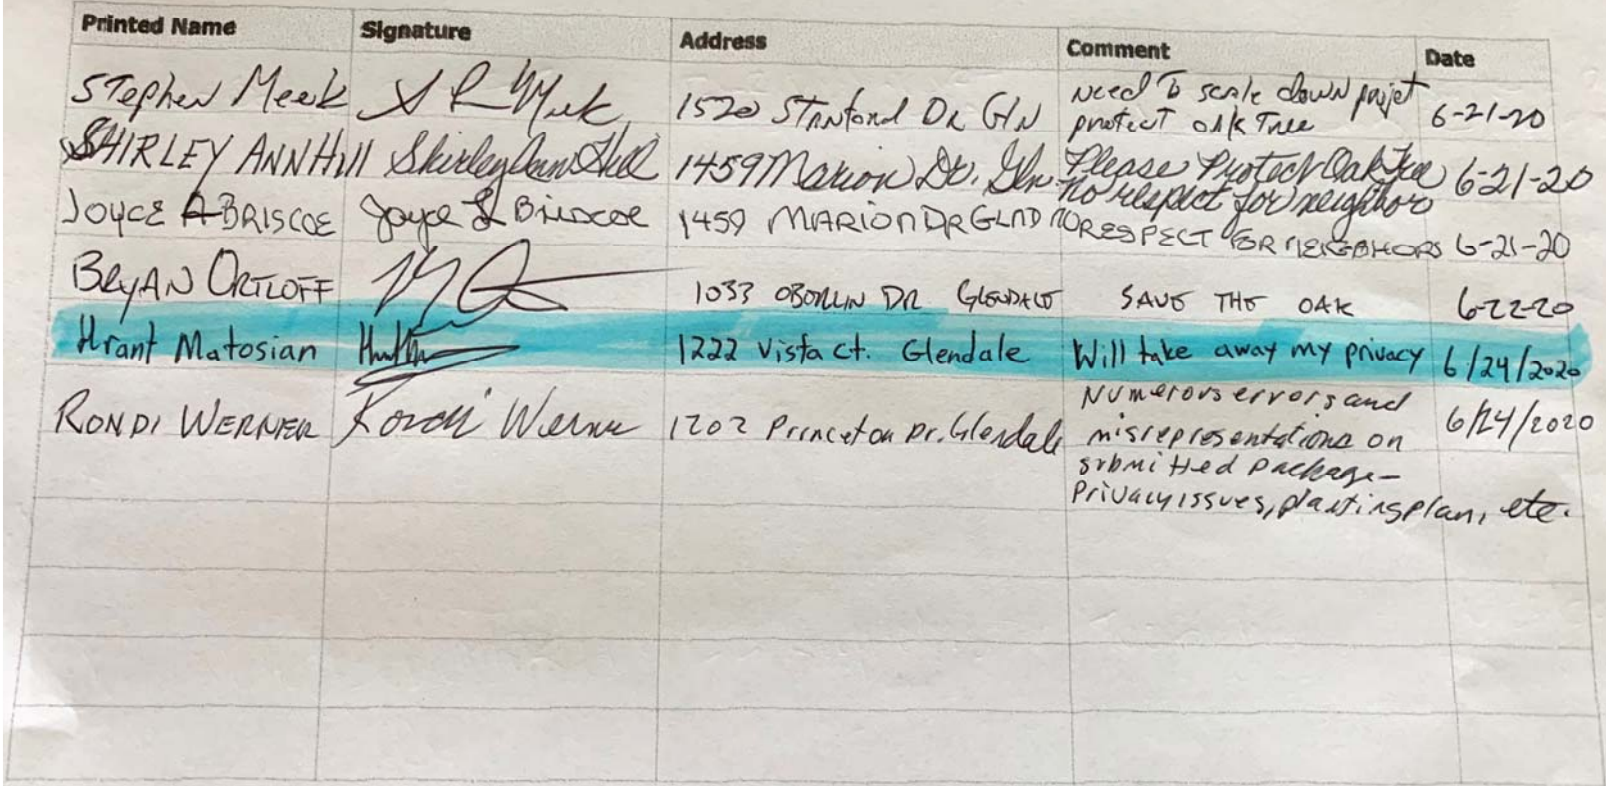 Printed Name Signature Address Comment Date
Stephen Meek S R Meek 1520 Stanford Dr Gln need to scale down projet 6-21-20
protect oak Tree
SHIRLEY ANN Hill Shirley Ann Hill 1459 Marion Dr. Gln. Please Protect Oak Tree 6-21-20
no respect for neighbors
JOYCE A BRISCOE Joyce A Briscoe 1459 MARION DR GLND NO RESPECT FOR NEIGHBHORS 6-21-20
BRYAN ORTLOFF 1033 OBORLIN DR GLENDALE SAVE THE OAK 6-22-20
Hrant Matosian 1222 Vista ct. Glendale Will take away my privacy 6/24/2020
RONDI WERNER Rondi Werner 1202 Princeton Dr. Glendale Numerous errors and 6/24/2020
misrepresentations on
submitted package-
Privacy issues, planting plan, etc.